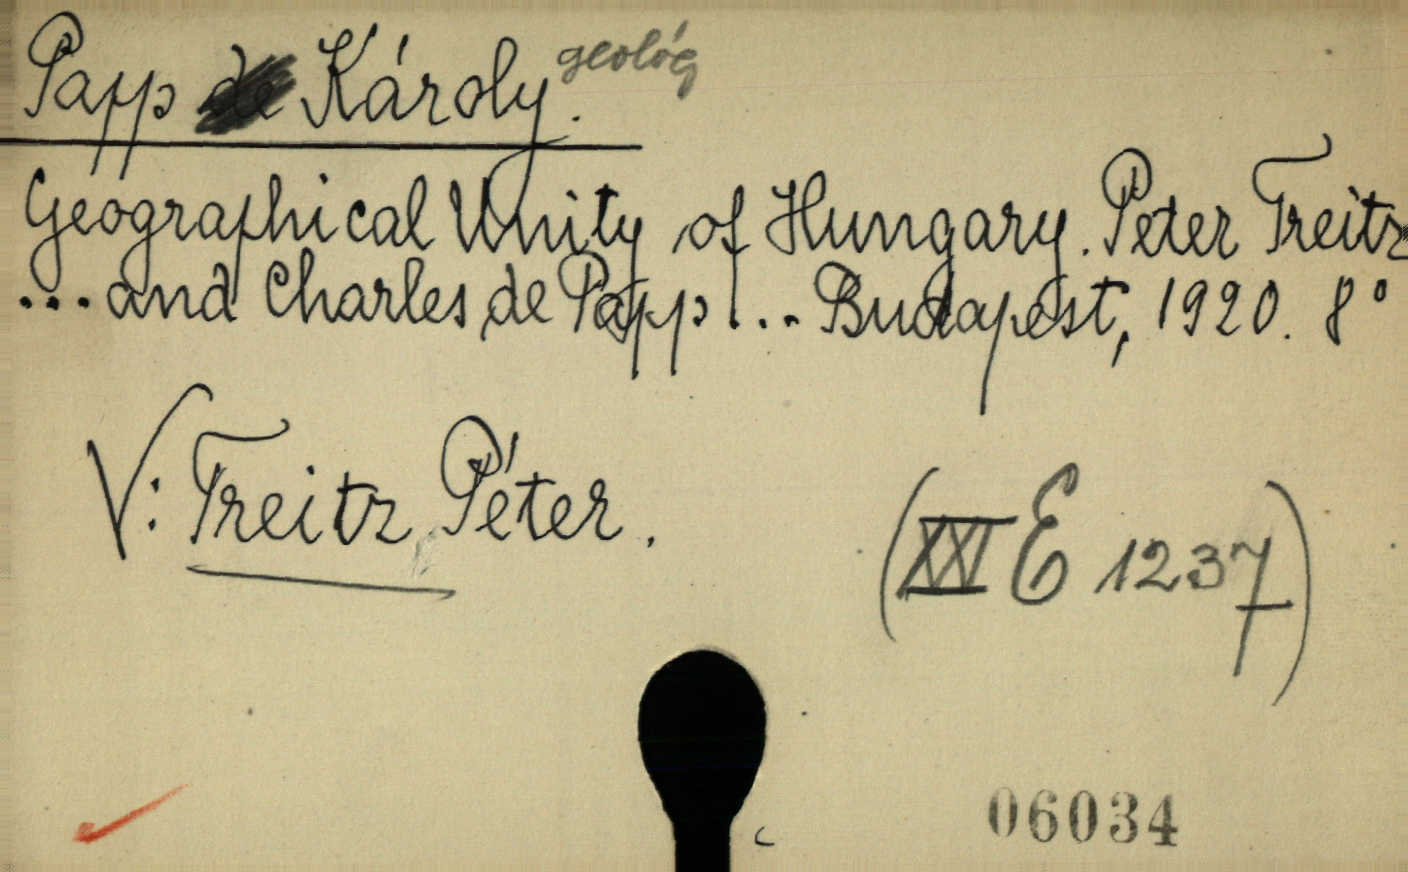 Papp de Károly. geológ
Geographical Unity of Hungary. Peter Treitz
... and Charles de Papp ... Budapest, 1920. 8°
V: Treitz Péter.
(XXI E 1237)
06034